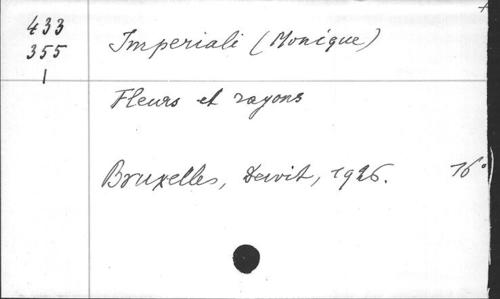 433
355
1
Imperiali (Monique)
Fleurs et rayons
Bruxelles, Dewit, 1926. 16°